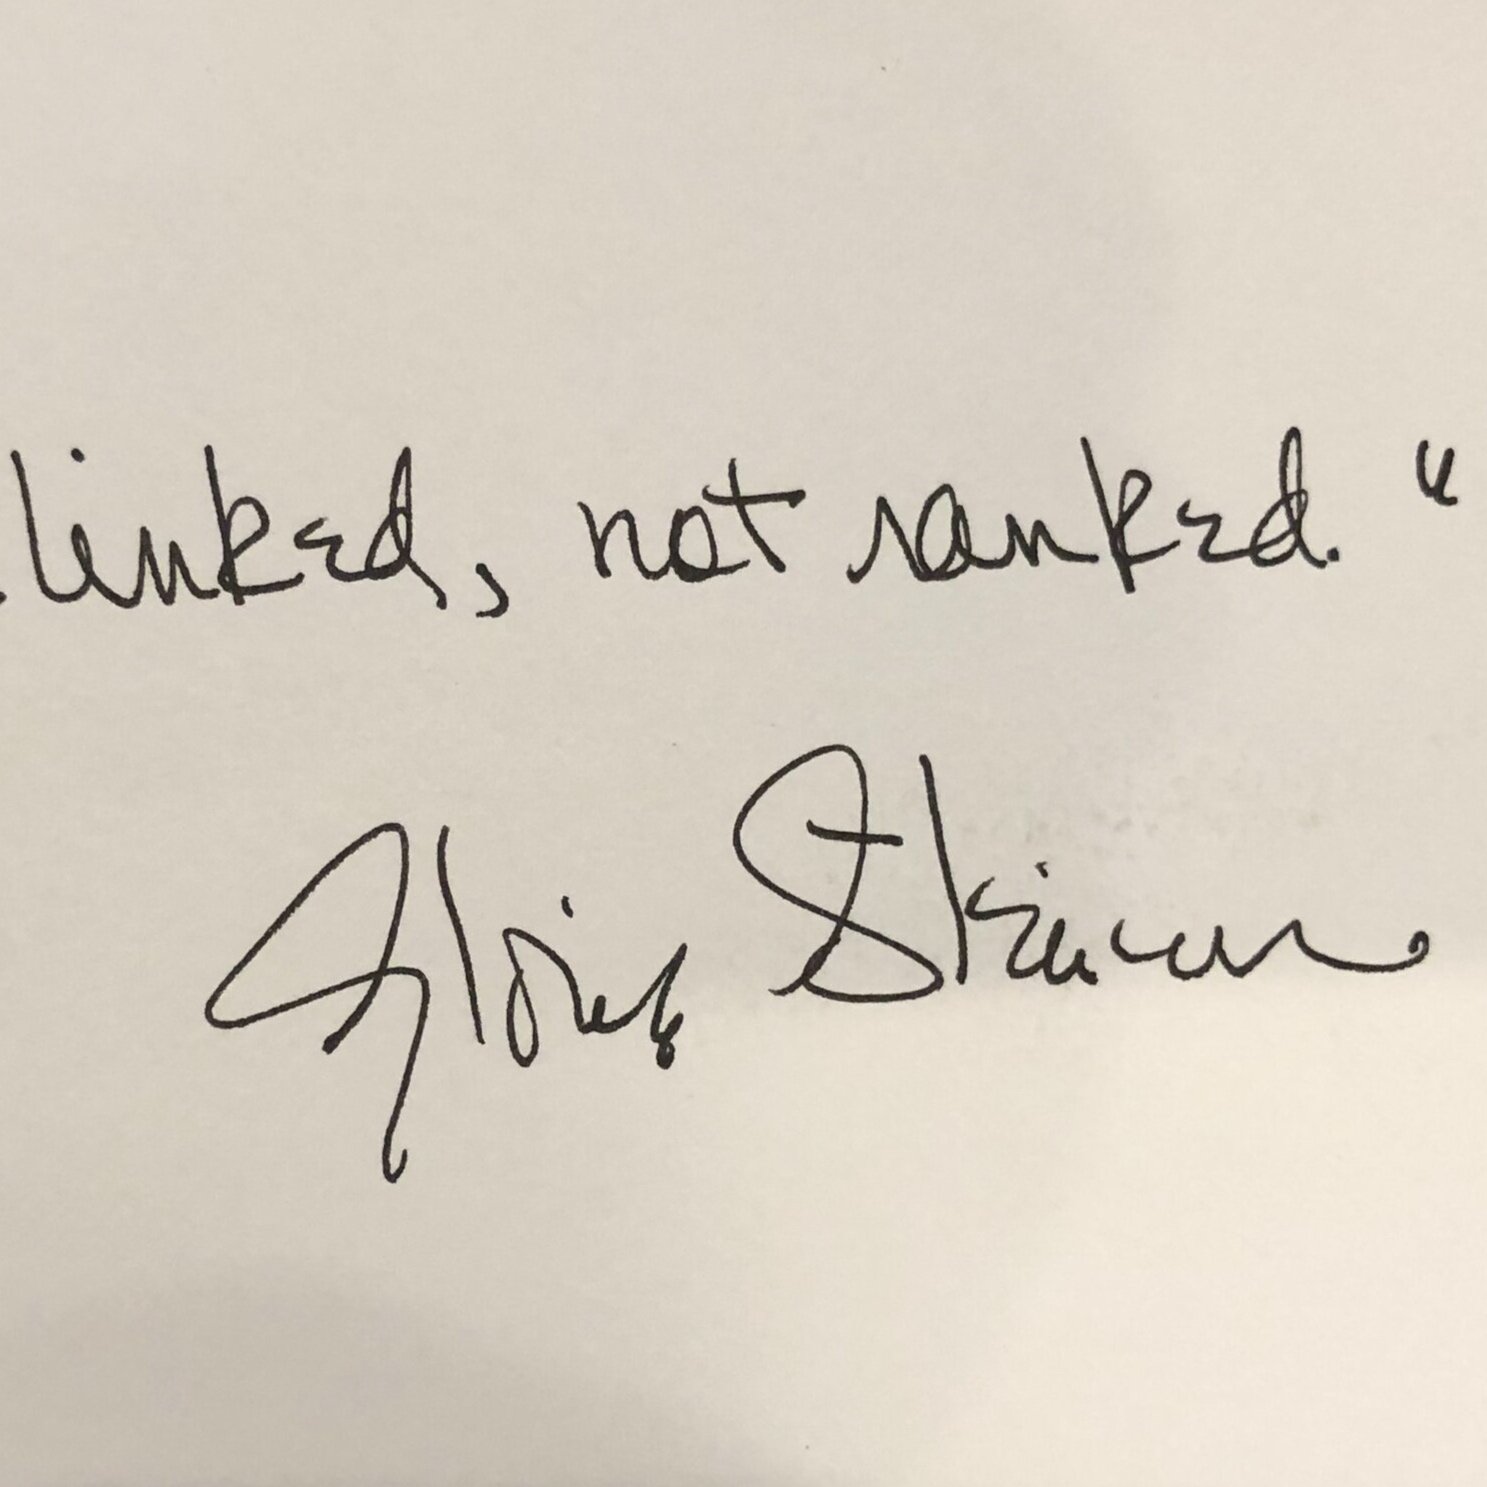 linked, not ranked."
Gloria Steinem